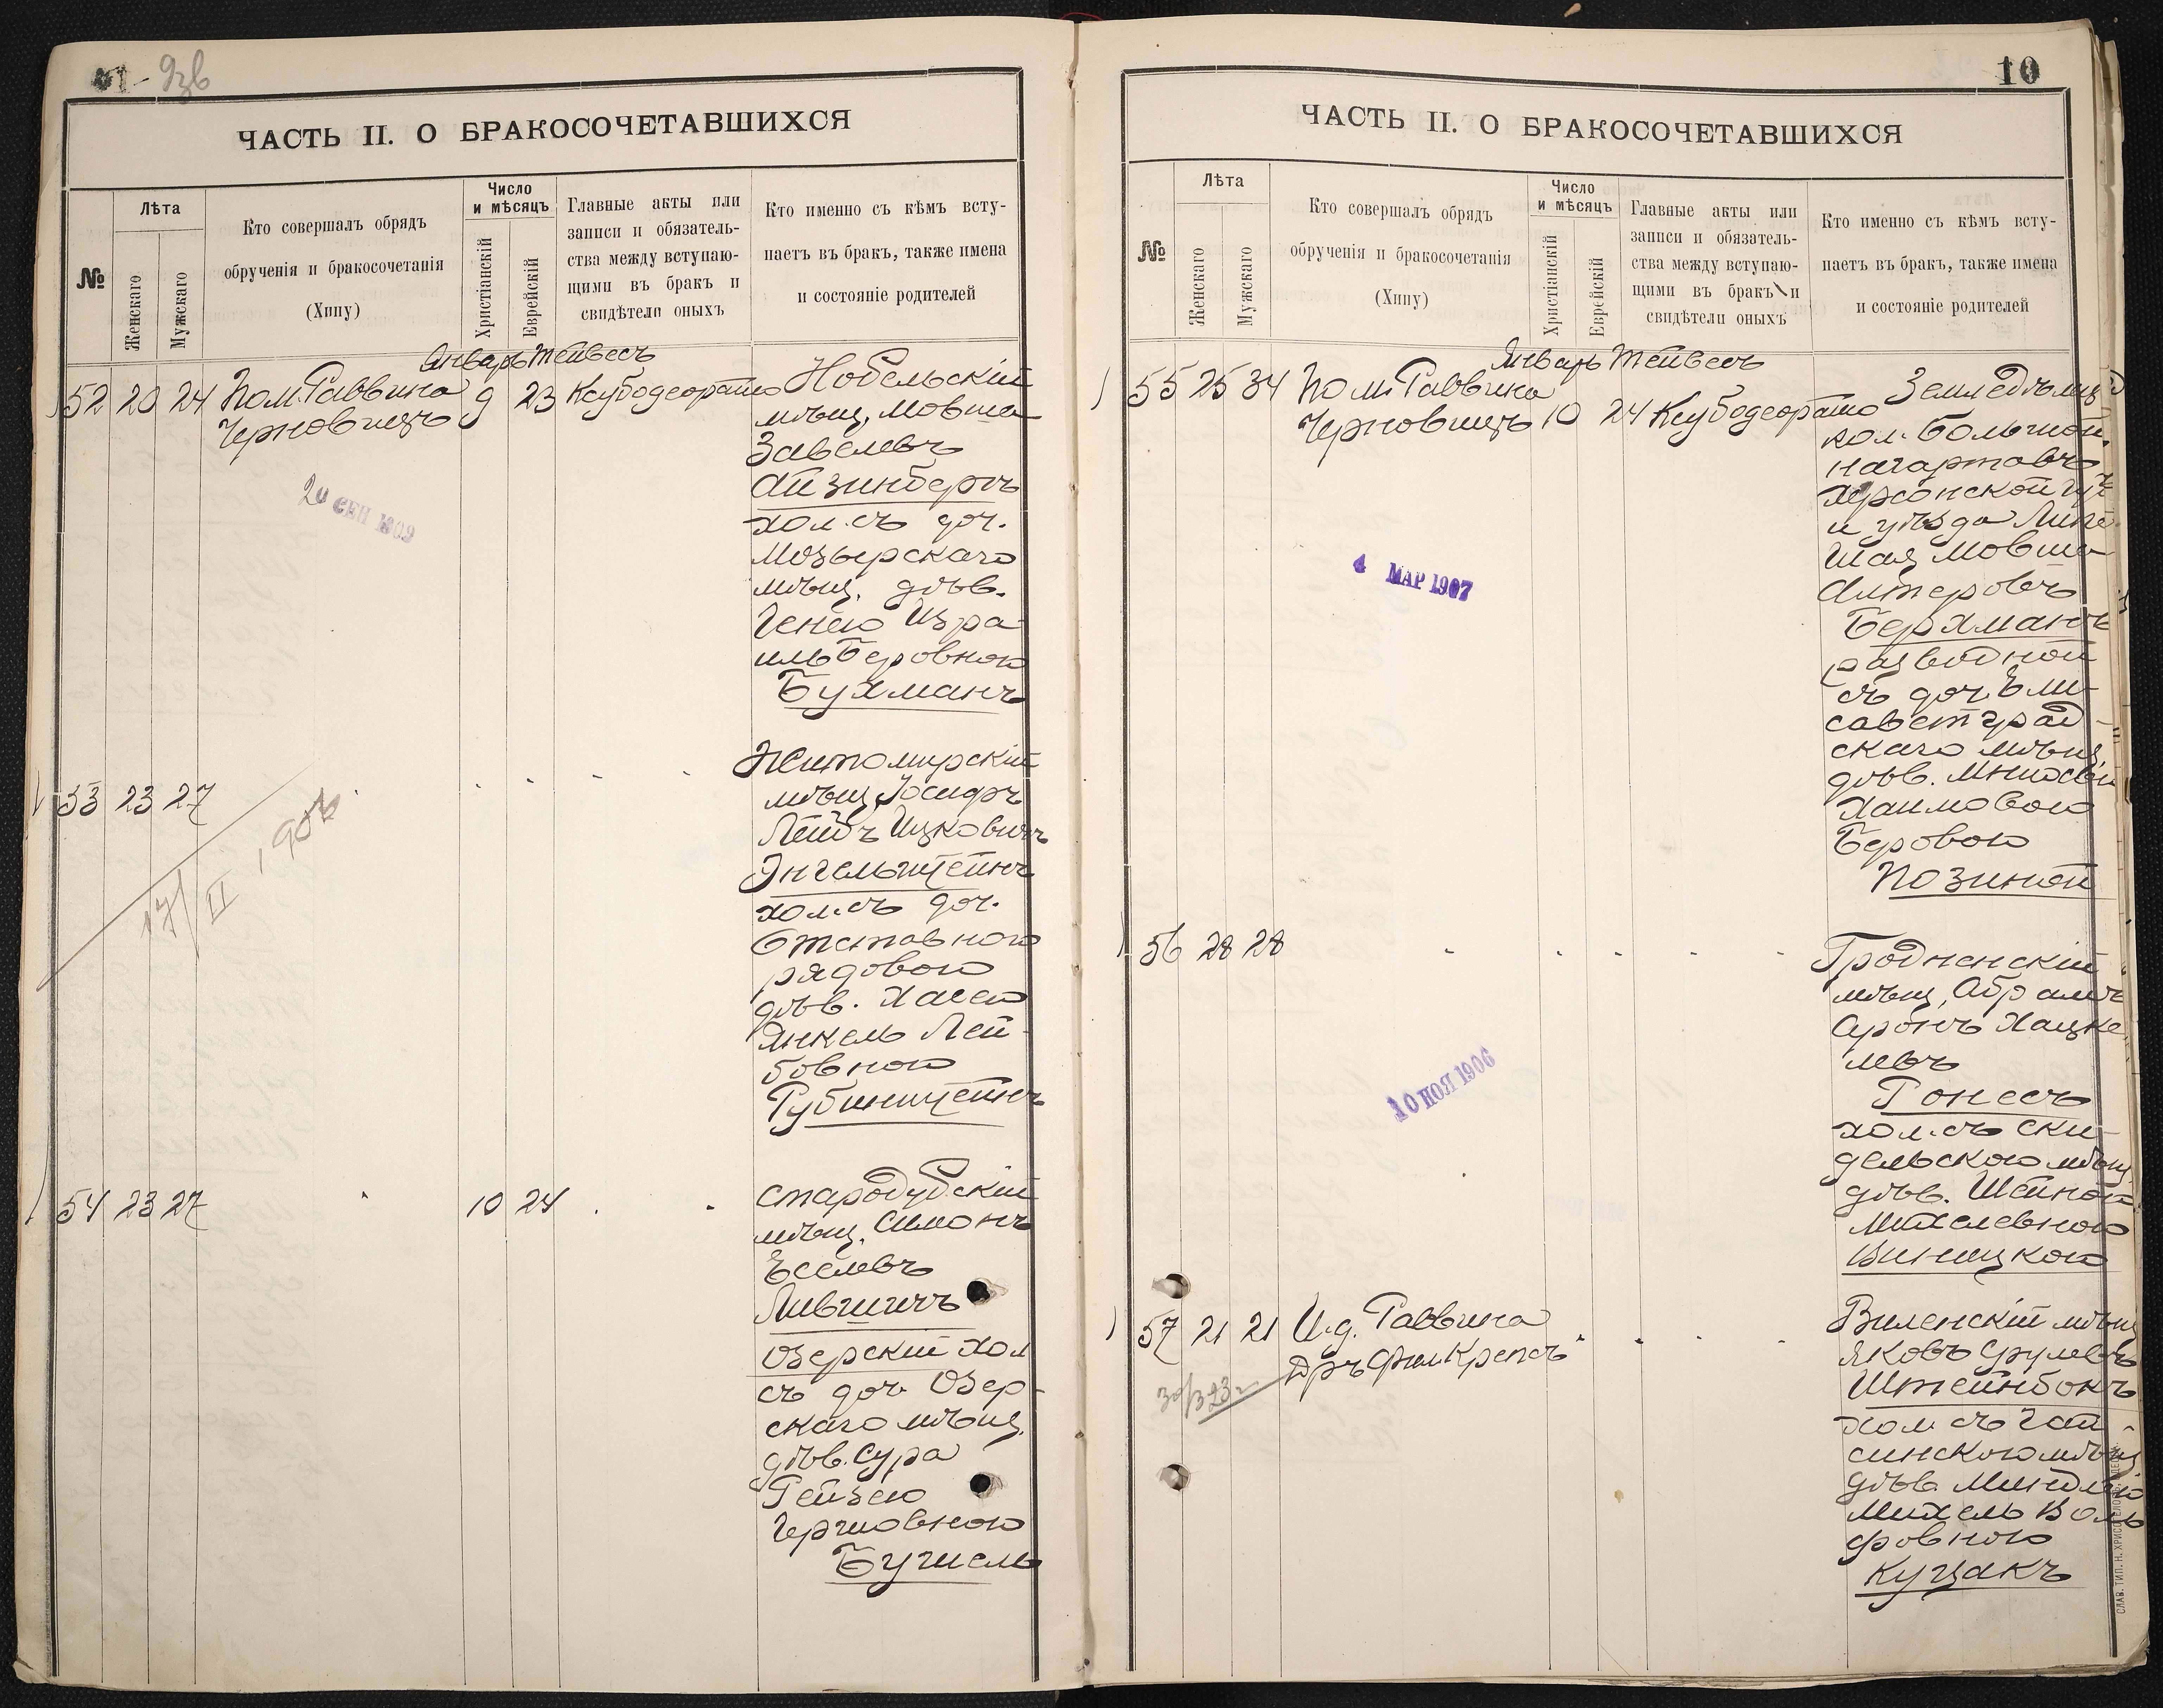 ЧАСТЬ II. О БРАКОСОЧЕТАВШИХСЯ
№
Лѣта
Женскаго
Мужскаго
Кто совершалъ обрядъ
обрученія и бракосочетанія
(Хипу)
Число
и мѣсяцъ
Христіанскій
Еврейскій
Главные акты или
записи и обязатель-
ства между вступаю-
щими въ бракъ и
свидѣтели оныхъ
Кто именно съ кѣмъ всту-
паетъ въ бракъ, также имена
и состояніе родителей
Январь Тейвесъ
52 20 24 Пом. Раввина 9 23 Ксубодеорайто
Черновицъ
20 СЕН 1909
Нобельскій
мѣщ. Мовша
Завелевъ
Айзинбергъ
хол. съ доч.
Мозырскаго
мѣщ. дѣв.
Генею Изра-
иль Беровною
Бухманъ
53 23 27
17/II 1906
Житомирскій
мѣщ. Іосифъ
Лейбъ Ицковичъ
Энгельштейнъ
хол. съ доч.
Отставного
рядового
дѣв. Хасею
Янкель Лей-
бовною
Рубинштейнъ
54 23 27 10 24
Стародубскій
мѣщ. Симонъ
Еселевъ
Лившицъ
Озерскій хол
съ доч. Озер-
скаго мѣщ.
дѣв. Сура
Рейзею
Гершовною
Бушель
10
ЧАСТЬ II. О БРАКОСОЧЕТАВШИХСЯ
№
Лѣта
Женскаго
Мужскаго
Кто совершалъ обрядъ
обрученія и бракосочетанія
(Хипу)
Число
и мѣсяцъ
Христіанскій
Еврейскій
Главные акты или
записи и обязатель-
ства между вступаю-
щими въ бракъ и
свидѣтели оныхъ
Кто именно съ кѣмъ всту-
паетъ въ бракъ, также имена
и состояніе родителей
Январь Тейвесъ
55 25 34 Пом. Раввина 10 24 Ксубодеорайто
Черновицъ
4 МАР 1907
Земледѣлецъ
кол. Большой
Нагартавъ
Херсонской губ
и уѣзда
Шая Мовша
Алтеровъ
Берхманъ
разводной
съ доч. Ели-
саветград-
скаго мѣщ.
дѣв.
Хаимовою
Беровою
Позиной
56 28 28
10 НОЯ 1906
Гродненскій
мѣщ. Абрамъ
Аронъ Хацке
левъ
Гонесъ
хол. съ Ски-
дельскою мѣщ.
дѣв. Шейною
Михелевною
Виницкою
57 21 21 И.д. Раввина
Дръ Фил. Крепсъ
Виленскій мѣщ
Яковъ Срулевъ
Штейнбокъ
хол. съ Гай-
синскою мѣщ
дѣв.
Михель Воль
фовною
Куцакъ